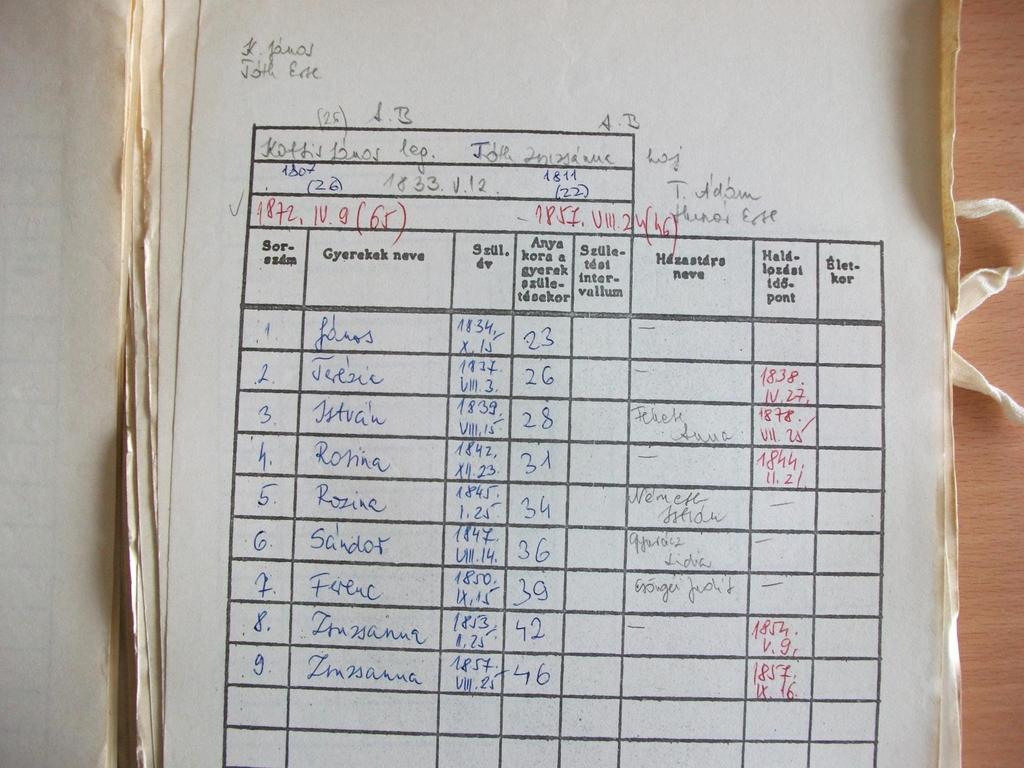 K. János
Tóth Erse
(26) A.B A.B
János leg. Tóth Zsuzsánna haj
1807 (26) 1833. V. 12. 1811 (22)
T. Ádám
Erse
1872. IV. 9 (65) - 1857. VIII. 24 (46)
Sor-szám Gyerekek neve Szül. év Anya kora a gyerek szüle-tésekor Szüle-tési inter-vallum Házastárs neve Halá-lozási idő-pont Élet-kor
1. János 1834. X. 15 23 —
2. Terézia 1837. VIII. 3. 26 1838. IV. 27.
3. István 1839. VIII. 15 28 Fekete Anna 1878. VII. 25
4. Rosina 1842. XII. 23. 31 — 1844. II. 21
5. Rozina 1845. I. 25 34 Németh István —
6. Sándor 1847. VIII. 14. 36 Lidia —
7. Ferenc 1850. IX. 15 39 Csöngei Judit —
8. Zsuzsanna 1853. II. 25 42 — 1854. V. 9.
9. Zsuzsanna 1857. VIII. 25 46 1857. IX. 16